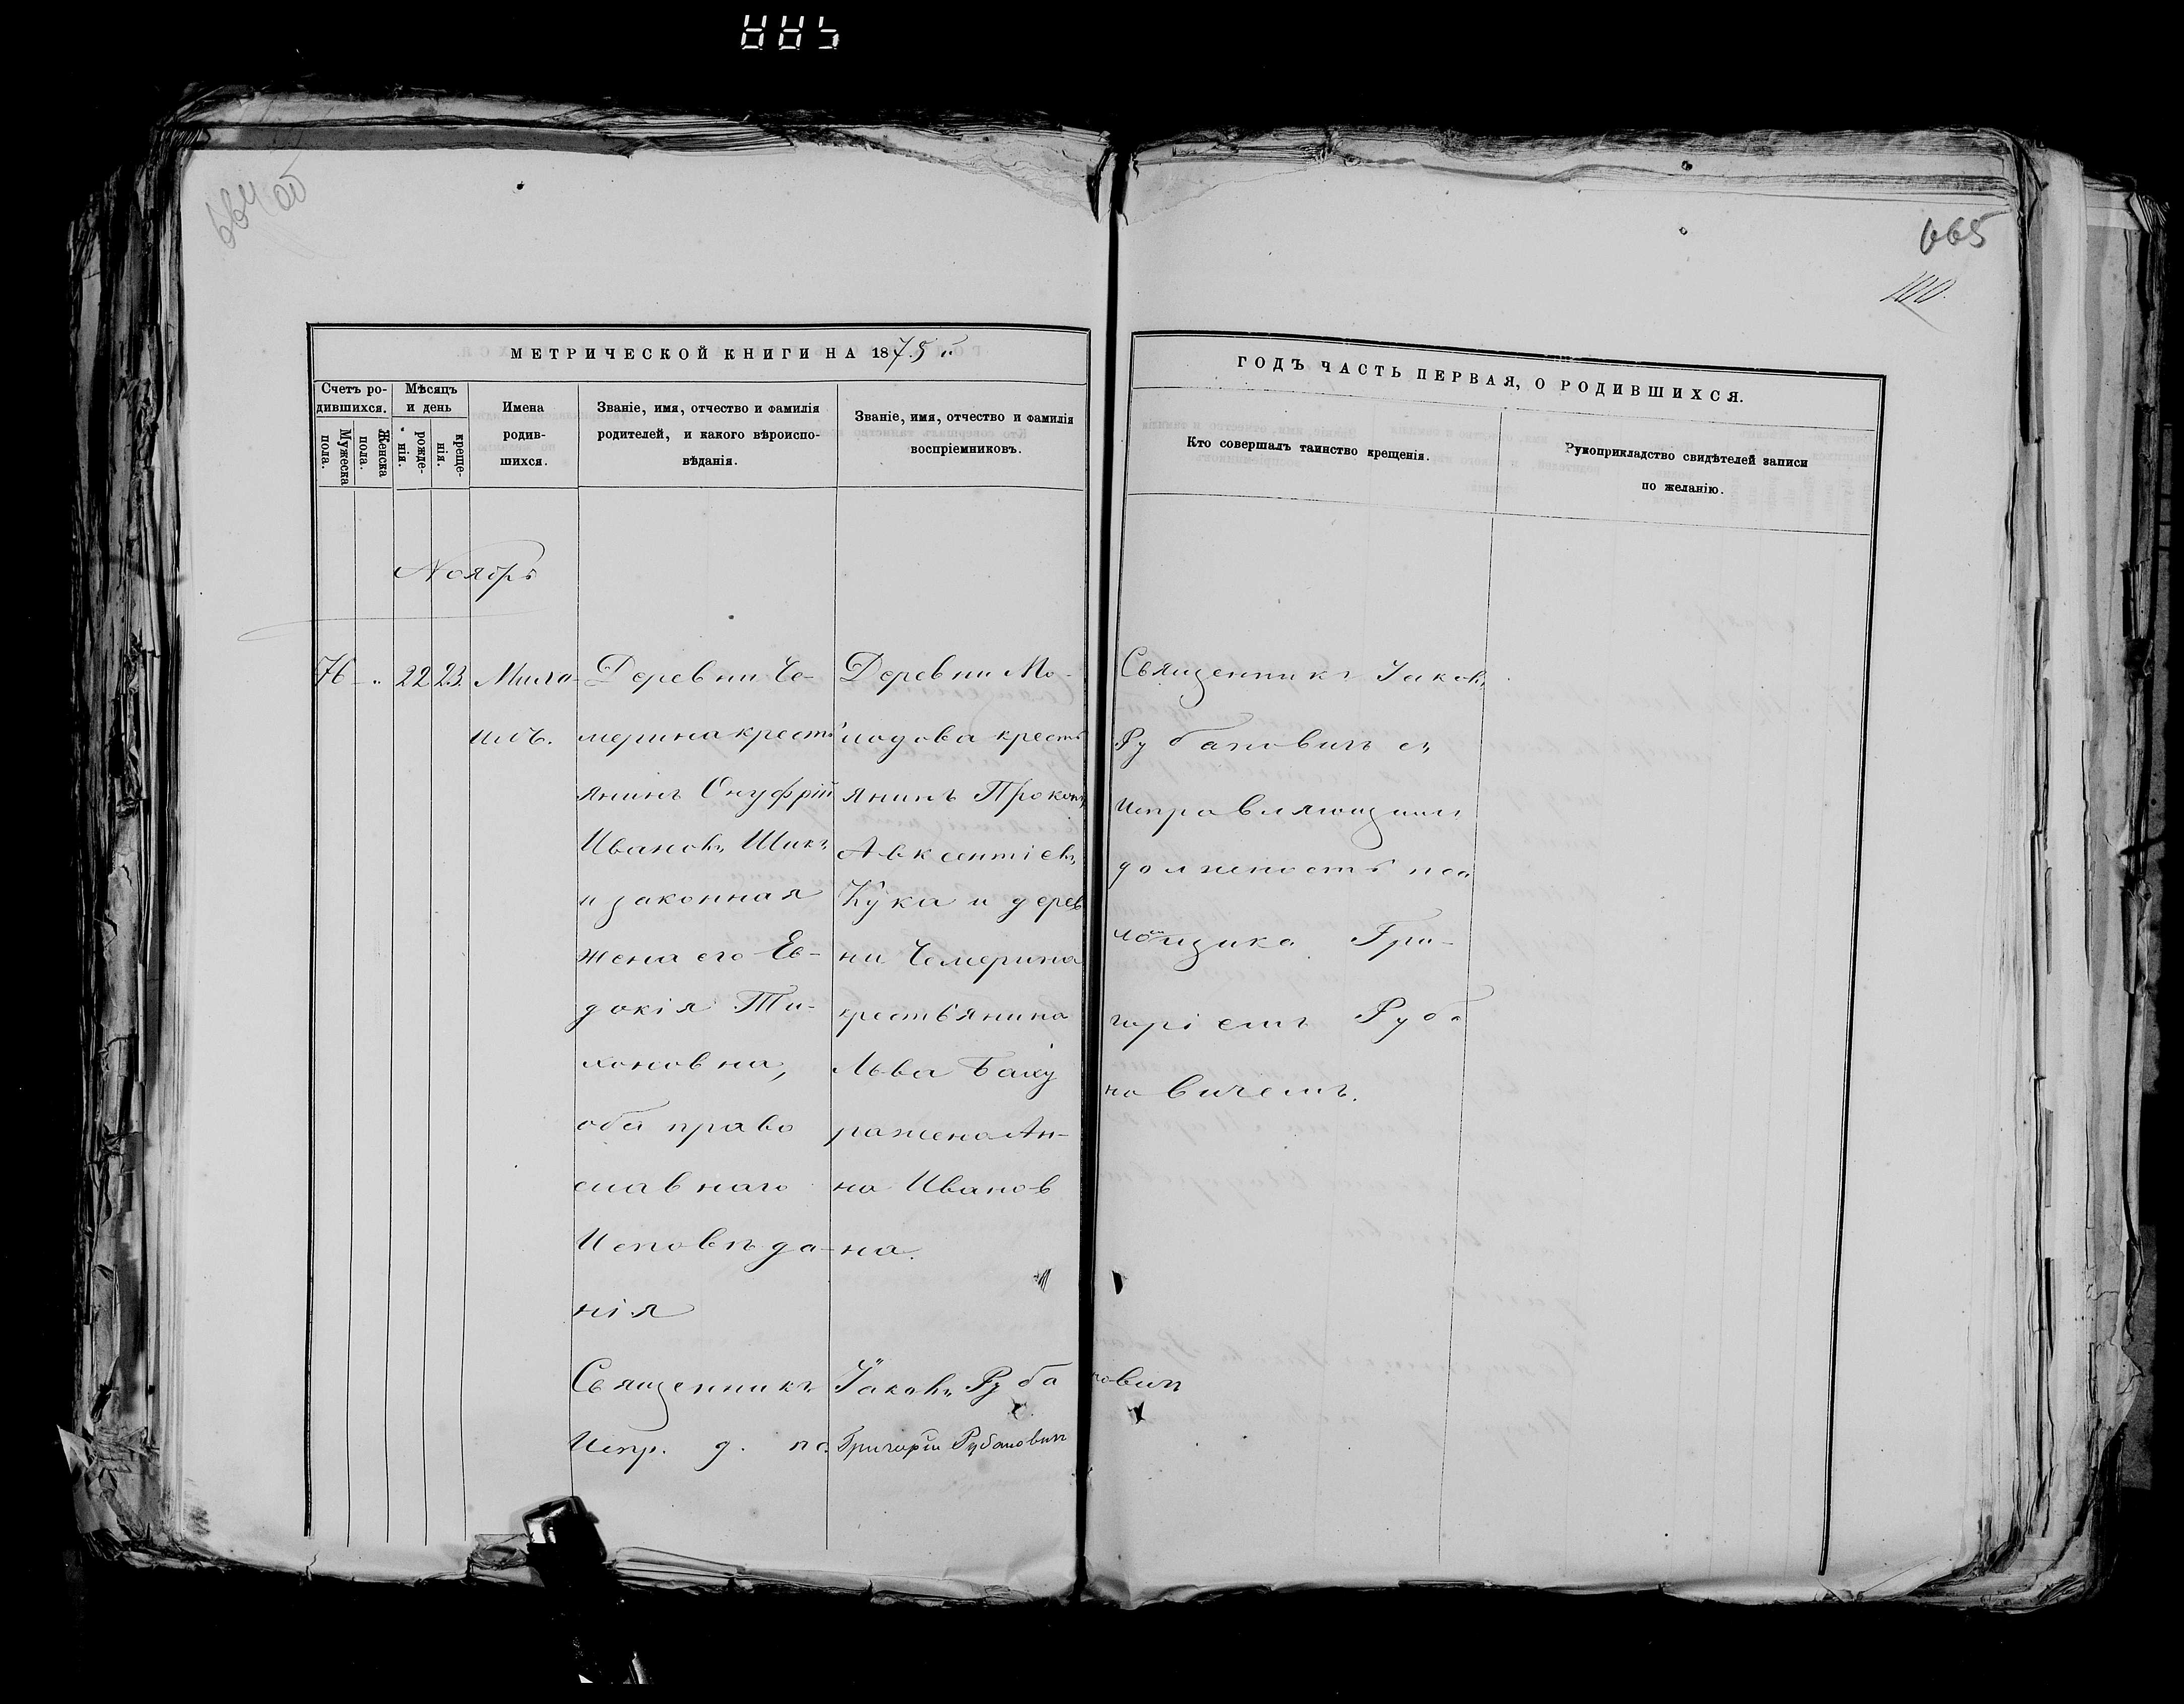 664 об
665
МЕТРИЧЕСКОЙ КНИГИ НА 1875й
ГОДЪ ЧАСТЬ ПЕРВАЯ, О РОДИВШИХСЯ.
Счетъ ро-
дившихся.
Мужеска
пола.
Женска
пола.
Мѣсяцъ
и день
рожде-
нія.
креще-
нія.
Имена
родив-
шихся.
Званіе, имя, отчество и фамилія
родителей, и какого вѣроиспо-
вѣданія.
Званіе, имя, отчество и фамилія
воспріемниковъ.
Кто совершалъ таинство крещенія.
Рукоприкладство свидѣтелей записи
по желанію.
Ноябрь
76 - „ 22 23
Миха-
илъ.
Деревни Че-
мерина кресть
янинъ Онуфрій
Ивановъ Шикъ
и законная
жена его Ев-
докія Ти-
хоновна,
оба право
славнаго
Исповѣда-
нія
Деревни Мо-
лодова кресть
янинъ Прокопъ
Авксентіевъ
Кука и дерев
ни Чемерина
крестьянина
Льва Баху
ра жена Ан-
на Иванов
на.
Священникъ Іаковъ
Рубановичъ съ
Исправляющимъ
должность пса
ломщика Гри-
горіемъ Руба
новичемъ.
Священникъ Іаковъ Рубановичъ
Испр. д. пс. Григорій Рубановичъ